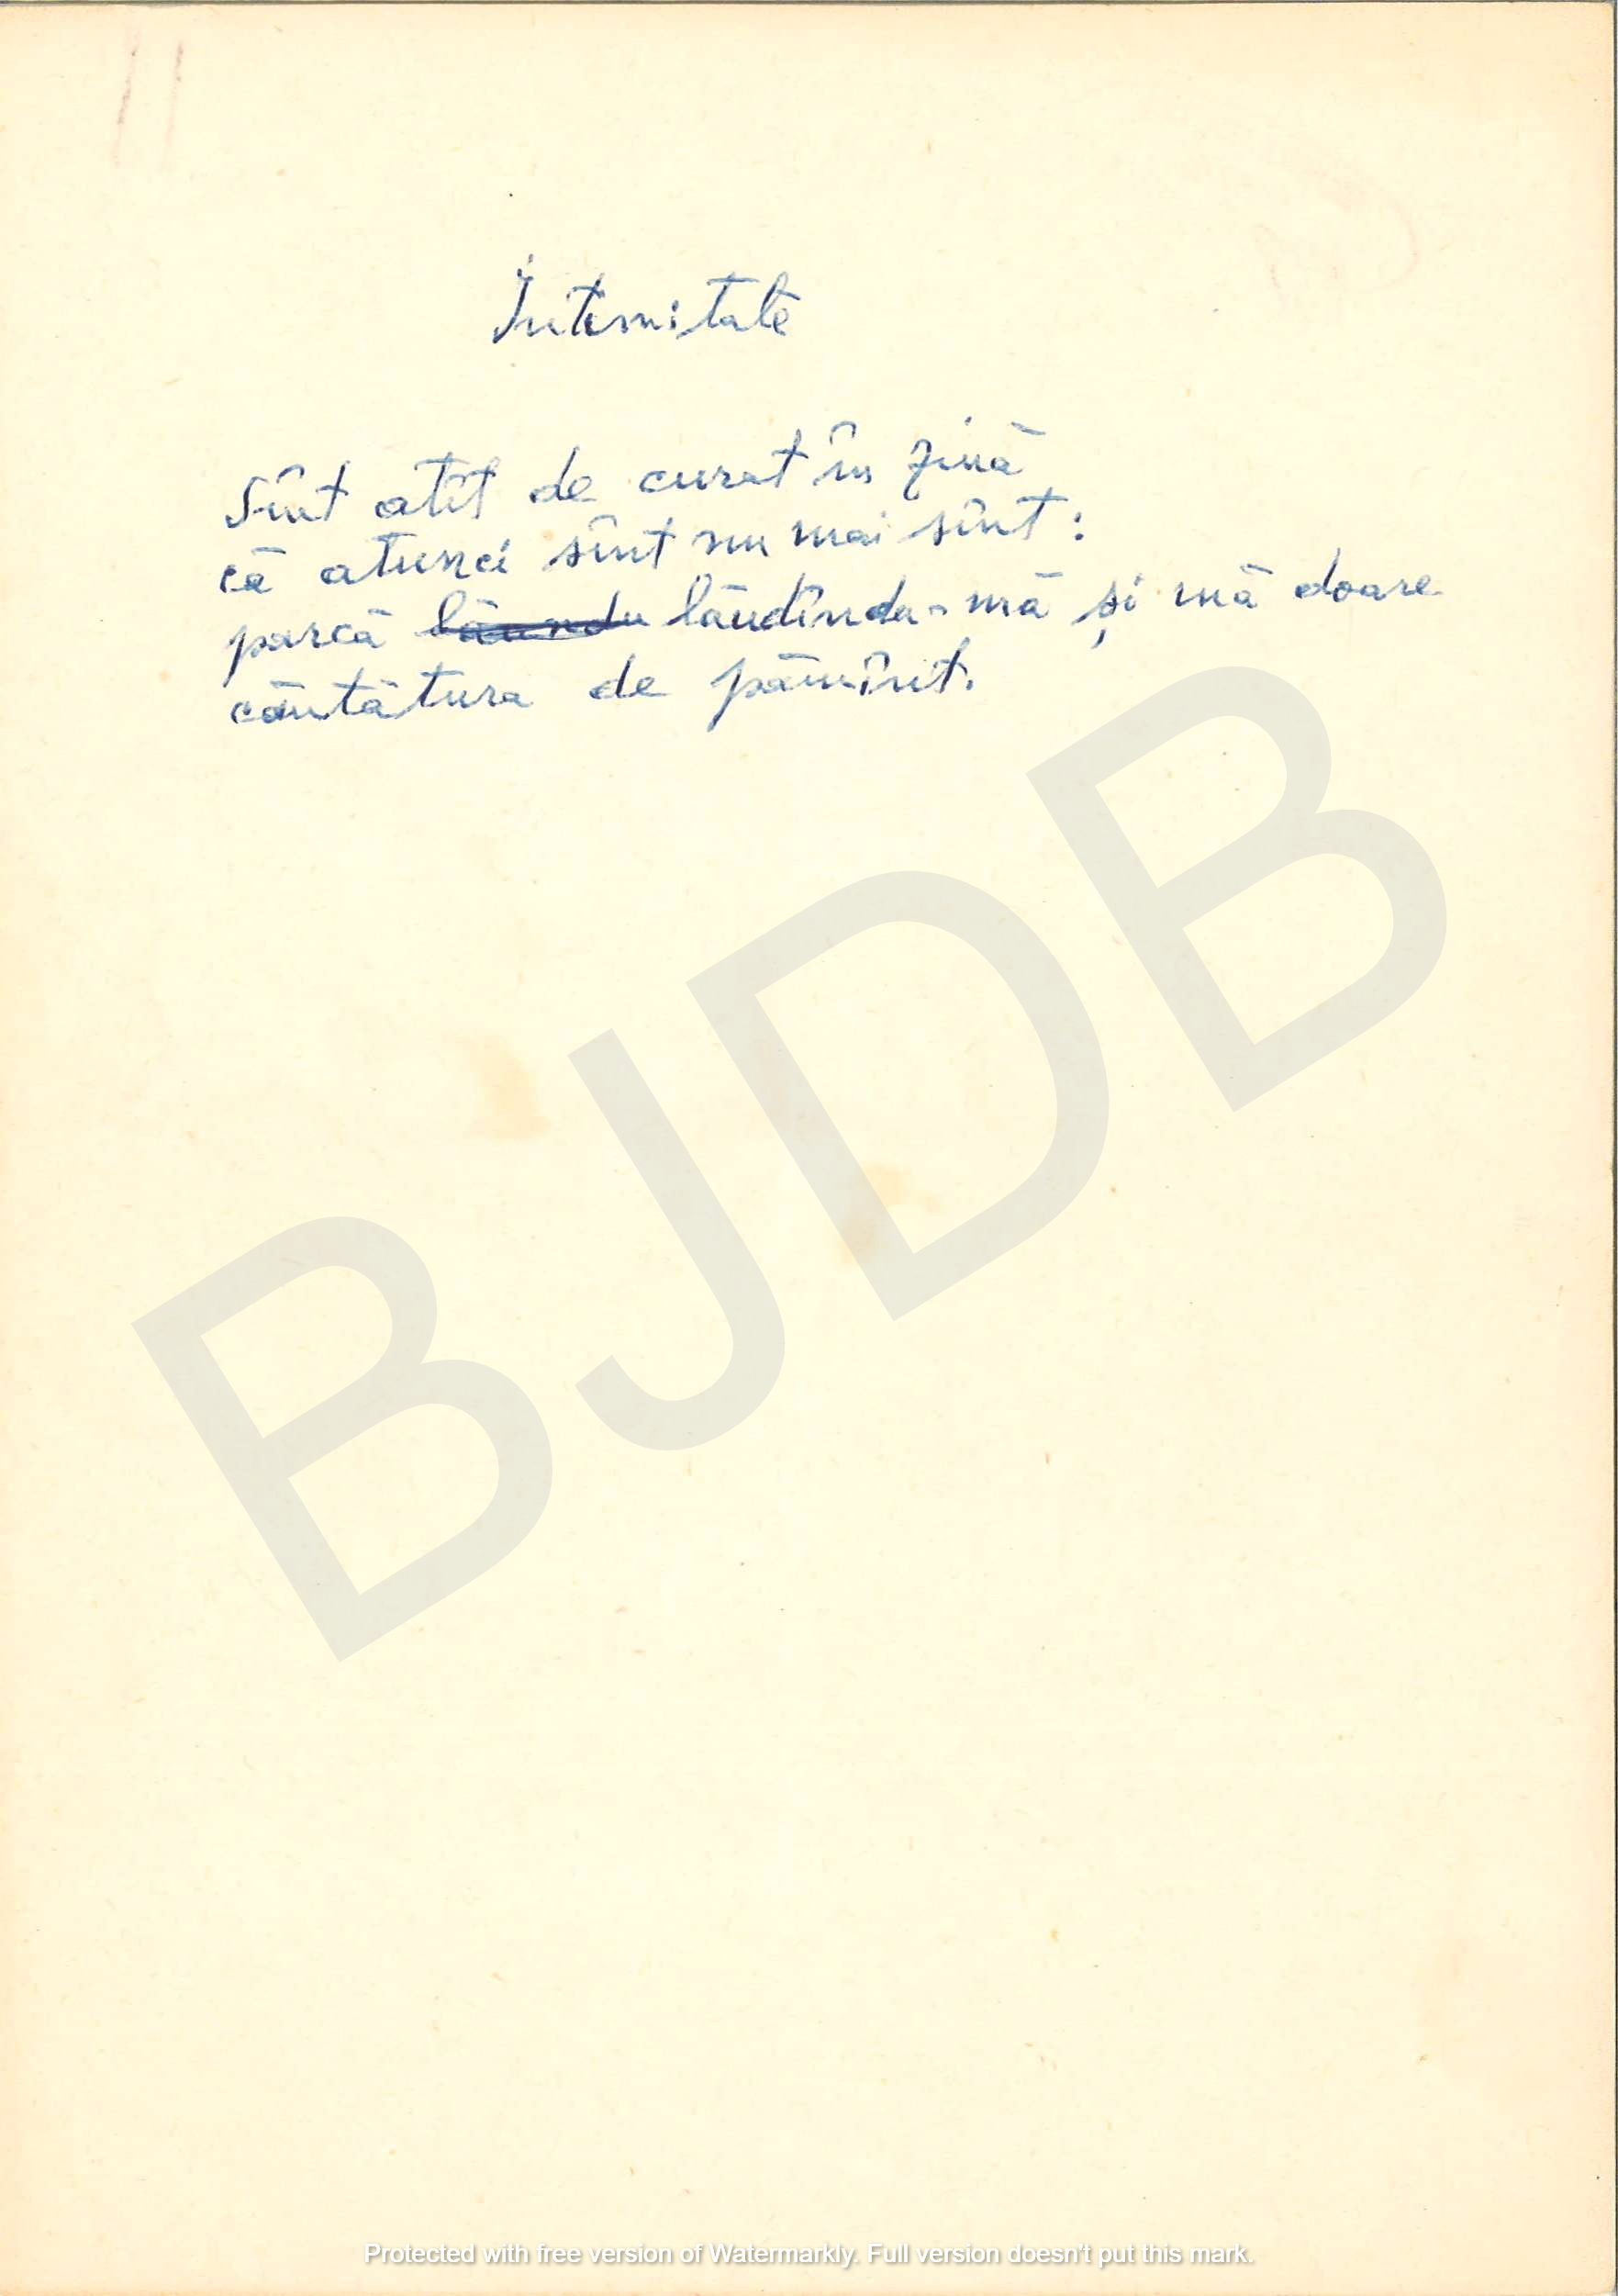 Intimitate
Sînt atît de curat în jină
că atunci sînt nu mai sînt:
parcă lăundu lăudîndu-mă și mă doare
căutătura de pămînt.
BJDB
Protected with free version of Watermarkly. Full version doesn't put this mark.